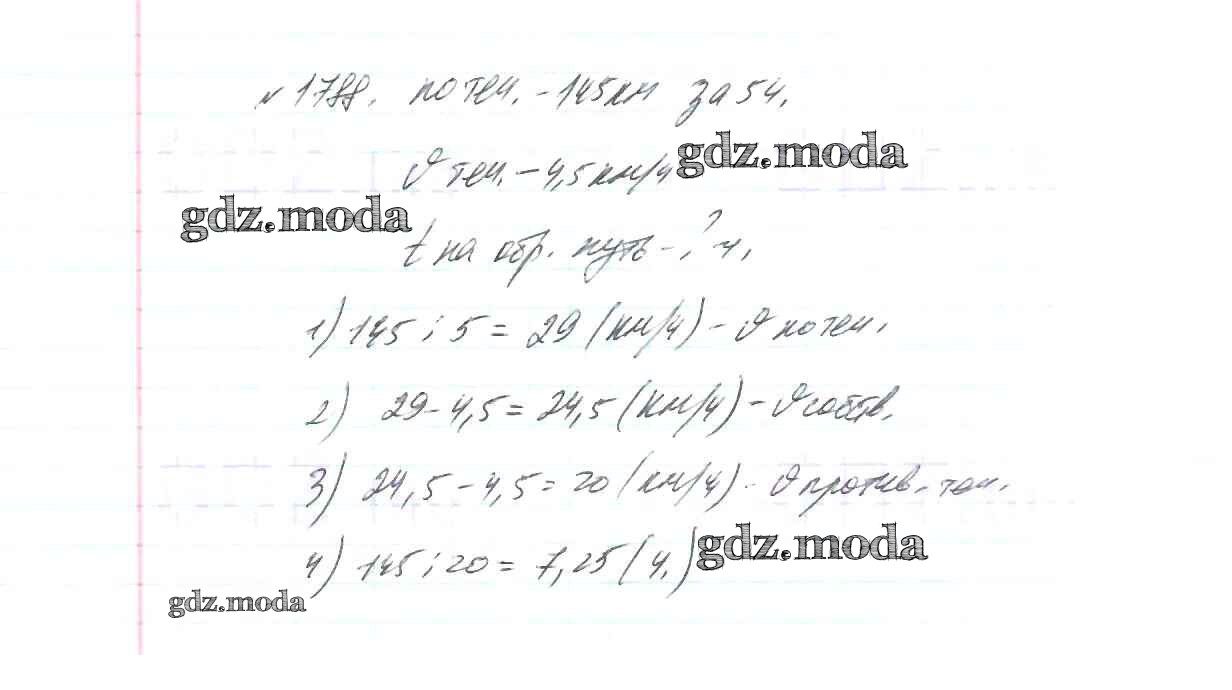 № 1788. по теч. - 145км за 5ч.
gdz.moda
ϑ теч. - 4,5 км/ч
gdz.moda
t на обр. путь - ? ч.
1) 145 : 5 = 29 (км/ч) - ϑ по теч.
2) 29 - 4,5 = 24,5 (км/ч) - ϑ собств.
3) 24,5 - 4,5 = 20 (км/ч) - ϑ против. теч.
4) 145 : 20 = 7,25 (ч.)
gdz.moda
gdz.moda